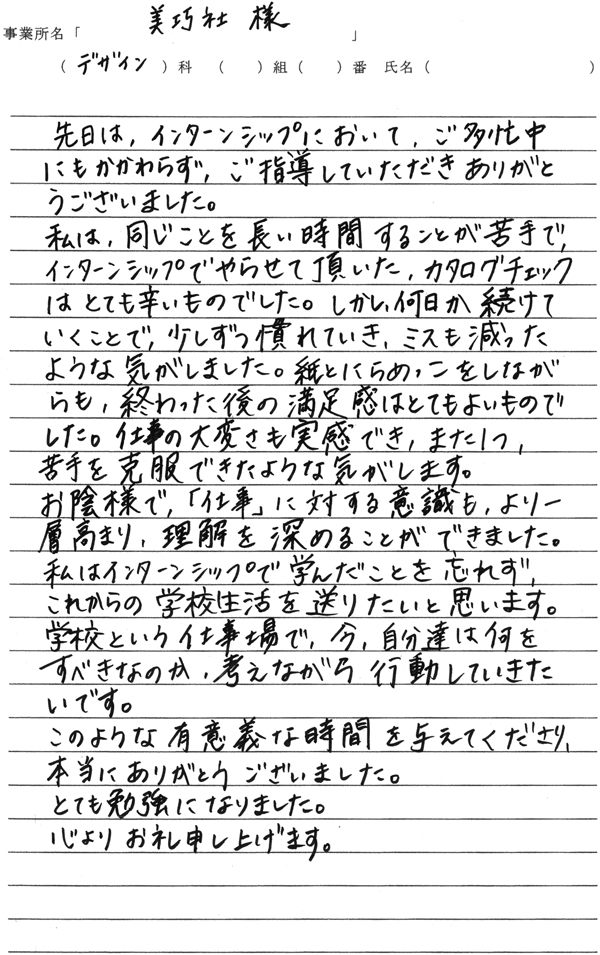 事業所名「 美巧社 様 」
( デザイン ) 科 ( ) 組 ( ) 番 氏名 ( )
先日は，インターンシップにおいて，ご多忙中
にもかかわらず，ご指導していただきありがと
うございました。
私は，同じことを長い時間することが苦手で，
インターンシップでやらせて頂いた，カタログチェック
はとても辛いものでした。しかし，何日か続けて
いくことで，少しずつ慣れていき，ミスも減った
ような気がしました。紙とにらめっこをしなが
らも，終わった後の満足感はとてもよいもので
した。仕事の大変さも実感でき，また1つ，
苦手を克服できたような気がします。
お陰様で，「仕事」に対する意識も，より一
層高まり，理解を深めることができました。
私はインターンシップで学んだことを忘れず，
これからの学校生活を送りたいと思います。
学校という仕事場で，今，自分達は何を
すべきなのか，考えながら行動していきた
いです。
このような有意義な時間を与えてくださり，
本当にありがとうございました。
とても勉強になりました。
心よりお礼申し上げます。